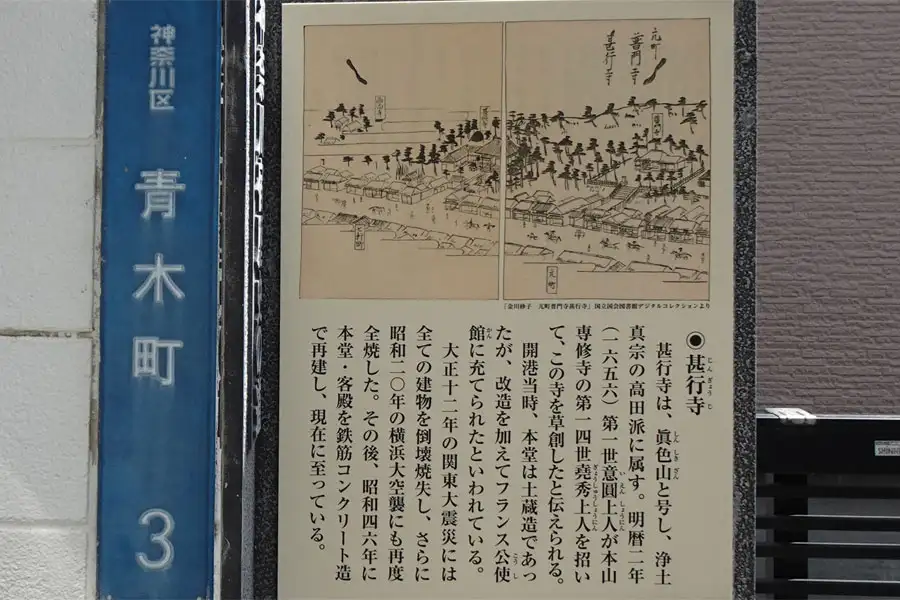 神奈川区 青木町 3
元町
普門寺
甚行寺
元町
「金川砂子 元町普門寺甚行寺」国立国会図書館デジタルコレクションより
●甚行寺
じんぎょうじ
甚行寺は、眞色山と号し、浄土
しんしきざん
真宗の高田派に属す。明暦二年
(一六五六)第一世意圓上人が本山
いえんしょうにん
専修寺の第一四世堯秀上人を招い
ぎょうしゅうしょうにん
て、この寺を草創したと伝えられる。
開港当時、本堂は土蔵造であっ
たが、改造を加えてフランス公使
こうし
館に充てられたといわれている。
かん
大正十二年の関東大震災には
全ての建物を倒壊焼失し、さらに
昭和二〇年の横浜大空襲にも再度
全焼した。その後、昭和四六年に
本堂・客殿を鉄筋コンクリート造
で再建し、現在に至っている。